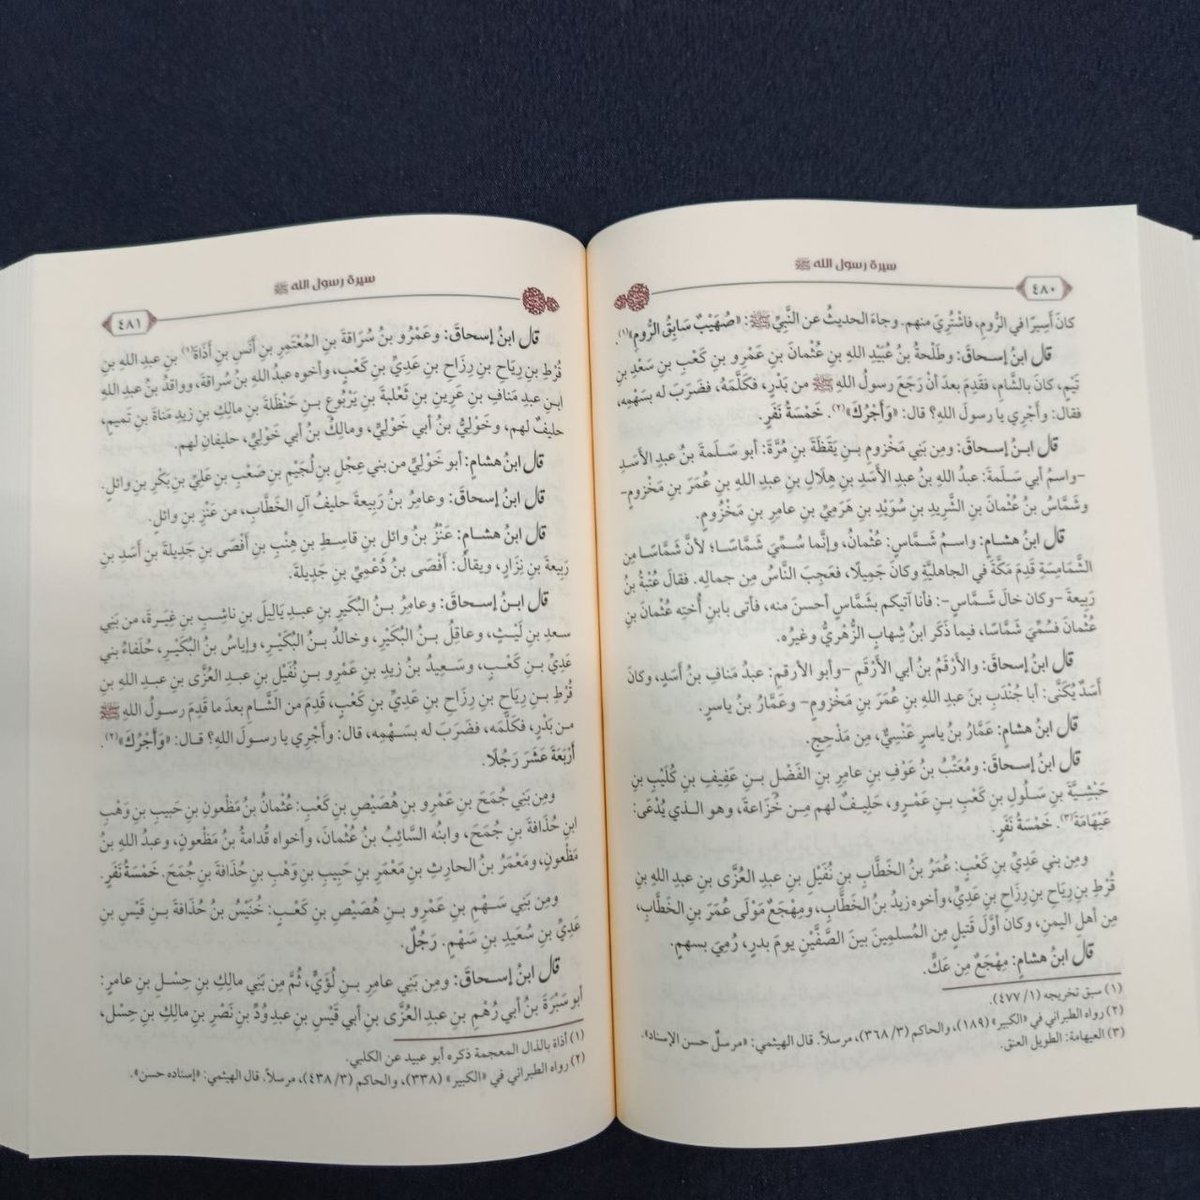 سيرة رسول الله ﷺ
٤٨٠
كانَ أَسِيرًا في الرُّومِ، فاشْتُرِيَ منهم. وجاءَ الحديثُ عن النَّبِيِّ ﷺ: «صُهَيْبٌ سَابِقُ الرُّومِ»(١).
قال ابنُ إسحاقَ: وطَلْحةُ بنُ عُبَيْدِ اللهِ بنِ عُثْمانَ بنِ عَمْرِو بنِ كَعْبِ بنِ سَعْدِ بنِ
تَيْمٍ، كانَ بالشَّامِ، فقَدِمَ بعدَ أنْ رَجَعَ رسولُ اللهِ ﷺ من بَدْرٍ، فكَلَّمَهُ، فضَرَبَ له بسَهْمِه،
فقال: وأَجْرِي يا رسولَ اللهِ؟ قال: «وَأَجْرُكَ»(٢). خَمْسَةُ نَفَرٍ.
قال ابنُ إسحاقَ: ومِن بَنِي مَخْزومِ بنِ يَقَظَةَ بنِ مُرَّةَ: أبو سَلَمةَ بنُ عبدِ الأَسَدِ
-واسمُ أبي سَلَمةَ: عبدُ اللهِ بنُ عبدِ الأَسَدِ بنِ هِلَالِ بنِ عبدِ اللهِ بنِ عُمَرَ بنِ مَخْزومٍ-
وشَمَّاسُ بنُ عُثْمانَ بنِ الشَّرِيدِ بنِ سُوَيْدِ بنِ هَرَمِيِّ بنِ عامِرِ بنِ مَخْزُومٍ.
قال ابنُ هشامٍ: واسمُ شَمَّاسٍ: عُثْمانُ، وإنَّما سُمِّيَ شَمَّاسًا؛ لأنَّ شَمَّاسًا مِن
الشَّمَامِسَةِ قَدِمَ مَكَّةَ في الجاهليَّةِ وكانَ جَمِيلًا، فعَجِبَ النَّاسُ مِن جمالِه. فقالَ عُتْبةُ بنُ
رَبِيعةَ -وكان خالَ شَمَّاسٍ-: فأنا آتيكم بشَمَّاسٍ أحسنَ منه، فأتى بابنِ أُختِه عُثْمانَ بنِ
عُثْمانَ فسُمِّيَ شَمَّاسًا، فيما ذَكَر ابنُ شِهابٍ الزُّهْرِيُّ وغيرُه.
قال ابنُ إسحاقَ: والأَرْقَمُ بنُ أبي الأَرْقَمِ -وأبو الأرقمِ: عبدُ مَنافِ بنُ أَسَدٍ، وكانَ
أَسَدٌ يُكَنَّى: أبا جُنْدَبِ بنَ عبدِ اللهِ بنِ عُمَرَ بنِ مَخْزومٍ- وعَمَّارُ بنُ ياسرٍ.
قال ابنُ هشامٍ: عَمَّارُ بنُ ياسرٍ عَنْسِيٌّ، مِن مَذْحِجٍ.
قال ابنُ إسحاقَ: ومُعَتِّبُ بنُ عَوْفِ بنِ عامِرِ بنِ الفَضْلِ بنِ عَفِيفِ بنِ كُلَيْبِ بنِ
حَبَشِيَّةَ بنِ سَلُولَ بنِ كَعْبِ بنِ عَمْرٍو، حَلِيفٌ لهم مِن خُزَاعةَ، وهو الذي يُدْعَى:
عَيْهَامَةَ(٣). خَمْسَةُ نَفَرٍ.
ومِن بني عَدِيِّ بنِ كَعْبٍ: عُمَرُ بنُ الخَطَّابِ بنِ نُفَيْلِ بنِ عبدِ العُزَّى بنِ عبدِ اللهِ بنِ
قُرْطِ بنِ رِيَاحِ بنِ رِزَاحِ بنِ عَدِيٍّ، وأخوه زيدُ بنُ الخَطَّابِ، ومِهْجَعٌ مَوْلَى عُمَرَ بنِ الخَطَّابِ،
مِن أهلِ اليمنِ، وكان أوَّلَ قَتِيلٍ مِن المُسلِمِينَ بينَ الصَّفَّيْنِ يومَ بدرٍ، رُمِيَ بسهمٍ.
قال ابنُ هشامٍ: مِهْجَعٌ مِن عَكٍّ.
(١) سبق تخريجه (١/ ٤٧٧).
(٢) رواه الطبراني في «الكبير» (١٨٩)، والحاكم (٣/ ٣٦٨)، مرسلاً. قال الهيثمي: «مرسلٌ حسن الإسناد».
(٣) العيهامة: الطويل العنق.
سيرة رسول الله ﷺ
٤٨١
قال ابنُ إسحاقَ: وعَمْرُو بنُ سُرَاقةَ بنِ المُعْتَمِرِ بنِ أَنَسِ بنِ أَذَاةَ(١) بنِ عبدِ اللهِ بنِ
قُرْطِ بنِ رِيَاحِ بنِ رِزَاحِ بنِ عَدِيِّ بنِ كَعْبٍ، وأخوه عبدُ اللهِ بنُ سُراقةَ، وواقدُ بنُ عبدِ اللهِ
ابنِ عبدِ مَنافِ بنِ عَرِينِ بنِ ثَعْلبةَ بنِ يَرْبُوعِ بنِ حَنْظَلةَ بنِ مالكِ بنِ زيدِ مَناةَ بنِ تميمٍ،
حليفٌ لهم، وخَوْلِيُّ بنُ أبي خَوْلِيٍّ، ومالكُ بنُ أبي خَوْلِيٍّ، حليفانِ لهم.
قال ابنُ هشامٍ: أبو خَوْلِيٍّ من بني عِجْلِ بنِ لُجَيْمِ بنِ صَعْبِ بنِ عَلِيِّ بنِ بَكْرِ بنِ وائلٍ.
قال ابنُ إسحاقَ: وعامِرُ بنُ رَبِيعةَ حليفُ آلِ الخَطَّابِ، من عَنْزِ بنِ وائلٍ.
قال ابنُ هشامٍ: عَنْزُ بنُ وائلِ بنِ قاسِطِ بنِ هِنْبِ بنِ أَفْصَى بنِ جَدِيلةَ بنِ أَسَدِ بنِ
رَبِيعةَ بنِ نِزَارٍ، ويقالُ: أَفْصَى بنُ دُعْمِيِّ بنِ جَدِيلةَ.
قال ابنُ إسحاقَ: وعامِرُ بنُ البُكَيْرِ بنِ عبدِ يَالِيلَ بنِ ناشِبِ بنِ غِيَرةَ، من بَنِي
سعدِ بنِ لَيْثٍ، وعاقِلُ بنُ البُكَيْرِ، وخالدُ بنُ البُكَيْرِ، وإياسُ بنُ البُكَيْرِ، حُلَفاءُ بني
عَدِيِّ بنِ كَعْبٍ، وسَعِيدُ بنُ زيدِ بنِ عَمْرِو بنِ نُفَيْلِ بنِ عبدِ العُزَّى بنِ عبدِ اللهِ بنِ
قُرْطِ بنِ رِيَاحِ بنِ رِزَاحِ بنِ عَدِيِّ بنِ كَعْبٍ، قَدِمَ من الشَّامِ بعدَ ما قَدِمَ رسولُ اللهِ ﷺ
من بَدْرٍ، فكَلَّمَه، فضَرَبَ له بسَهْمِه، قال: وأَجْرِي يا رسولَ اللهِ؟ قال: «وَأَجْرُكَ»(٢).
أَرْبَعَةَ عَشَرَ رَجُلًا.
ومِن بَنِي جُمَحَ بنِ عَمْرِو بنِ هُصَيْصِ بنِ كَعْبٍ: عُثْمانُ بنُ مَظْعونِ بنِ حَبيبِ بنِ وَهْبِ
ابنِ حُذَافةَ بنِ جُمَحَ، وابنُه السَّائِبُ بنُ عُثْمانَ، وأخواه قُدامةُ بنُ مَظْعونٍ، وعبدُ اللهِ بنُ
مَظْعونٍ، ومَعْمَرُ بنُ الحارِثِ بنِ مَعْمَرِ بنِ حَبِيبِ بنِ وَهْبِ بنِ حُذَافةَ بنِ جُمَحَ. خَمْسَةُ نَفَرٍ.
ومِن بَنِي سَهْمِ بنِ عَمْرِو بنِ هُصَيْصِ بنِ كَعْبٍ: خُنَيْسُ بنُ حُذَافةَ بنِ قَيْسِ بنِ
عَدِيِّ بنِ سُعَيْدِ بنِ سَهْمٍ. رَجُلٌ.
قال ابنُ إسحاقَ: ومِن بَنِي عامِرِ بنِ لُؤَيٍّ، ثُمَّ مِن بَنِي مالكِ بنِ حِسْلِ بنِ عامرٍ:
أبو سَبْرَةَ بنُ أبي رُهْمِ بنِ عبدِ العُزَّى بنِ أبي قَيْسِ بنِ عبدِ وُدِّ بنِ نَصْرِ بنِ مالكِ بنِ حِسْلٍ،
(١) أذاة بالذال المعجمة ذكره أبو عبيد عن الكلبي.
(٢) رواه الطبراني في «الكبير» (٣٣٨)، والحاكم (٣/ ٤٣٨)، مرسلاً. قال الهيثمي: «إسناده حسن».